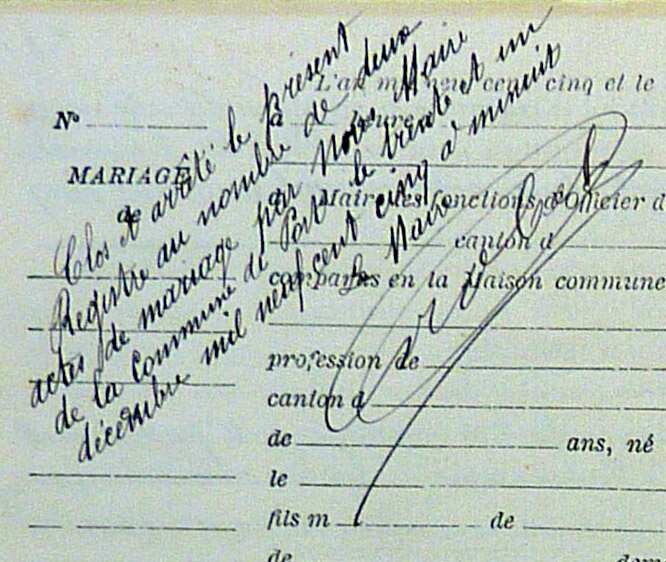 Clos et arrêté le présent
Registre au nombre de deux
actes de mariage par Nous Maire
de la commune de Port le trente et un
décembre mil neuf cent cinq à minuit
Le Maire
L'an mil neuf cent cinq et le
N°
à heure
MARIAGE
de
Maire les fonctions d'Officier d
canton d
comparus en la Maison commune
profession de
canton d
de ans, né
le
fils m de
de